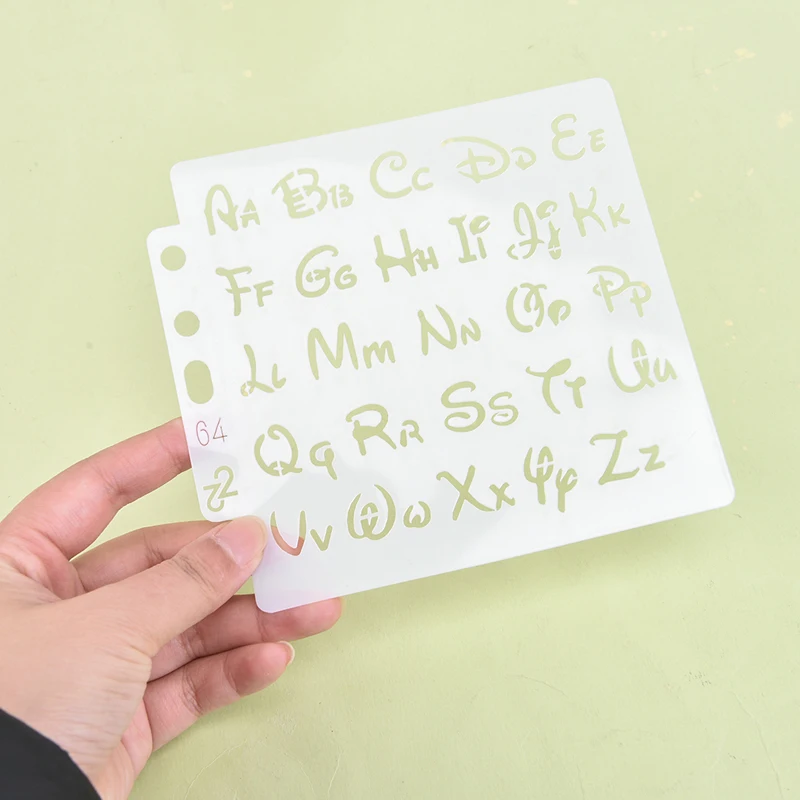 Aa Bb Cc Dd Ee
Ff Gg Hh Ii Jj Kk
Ll Mm Nn Oo Pp
64
Qq Rr Ss Tt Uu
Vv Ww Xx Yy Zz